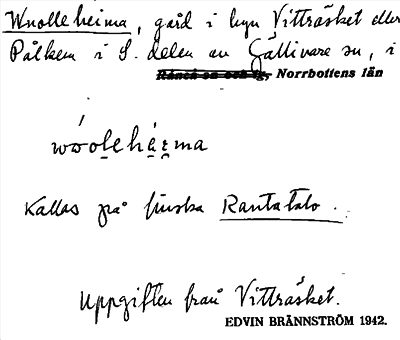 Wuolleheima, gård i byn Vitträsket eller
Pålkem i S. delen av Gällivare sn, i
Råneå sn och tg, Norrbottens län
Kallas på finska Rantatalo.
Uppgiften från Vitträsket.
EDVIN BRÄNNSTRÖM 1942.